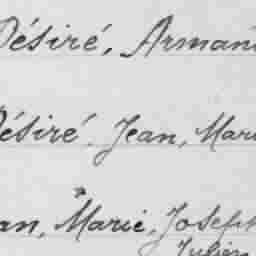 Désiré, Armand
Désiré, Jean, Mari
an, Marie, Joseph
Julien